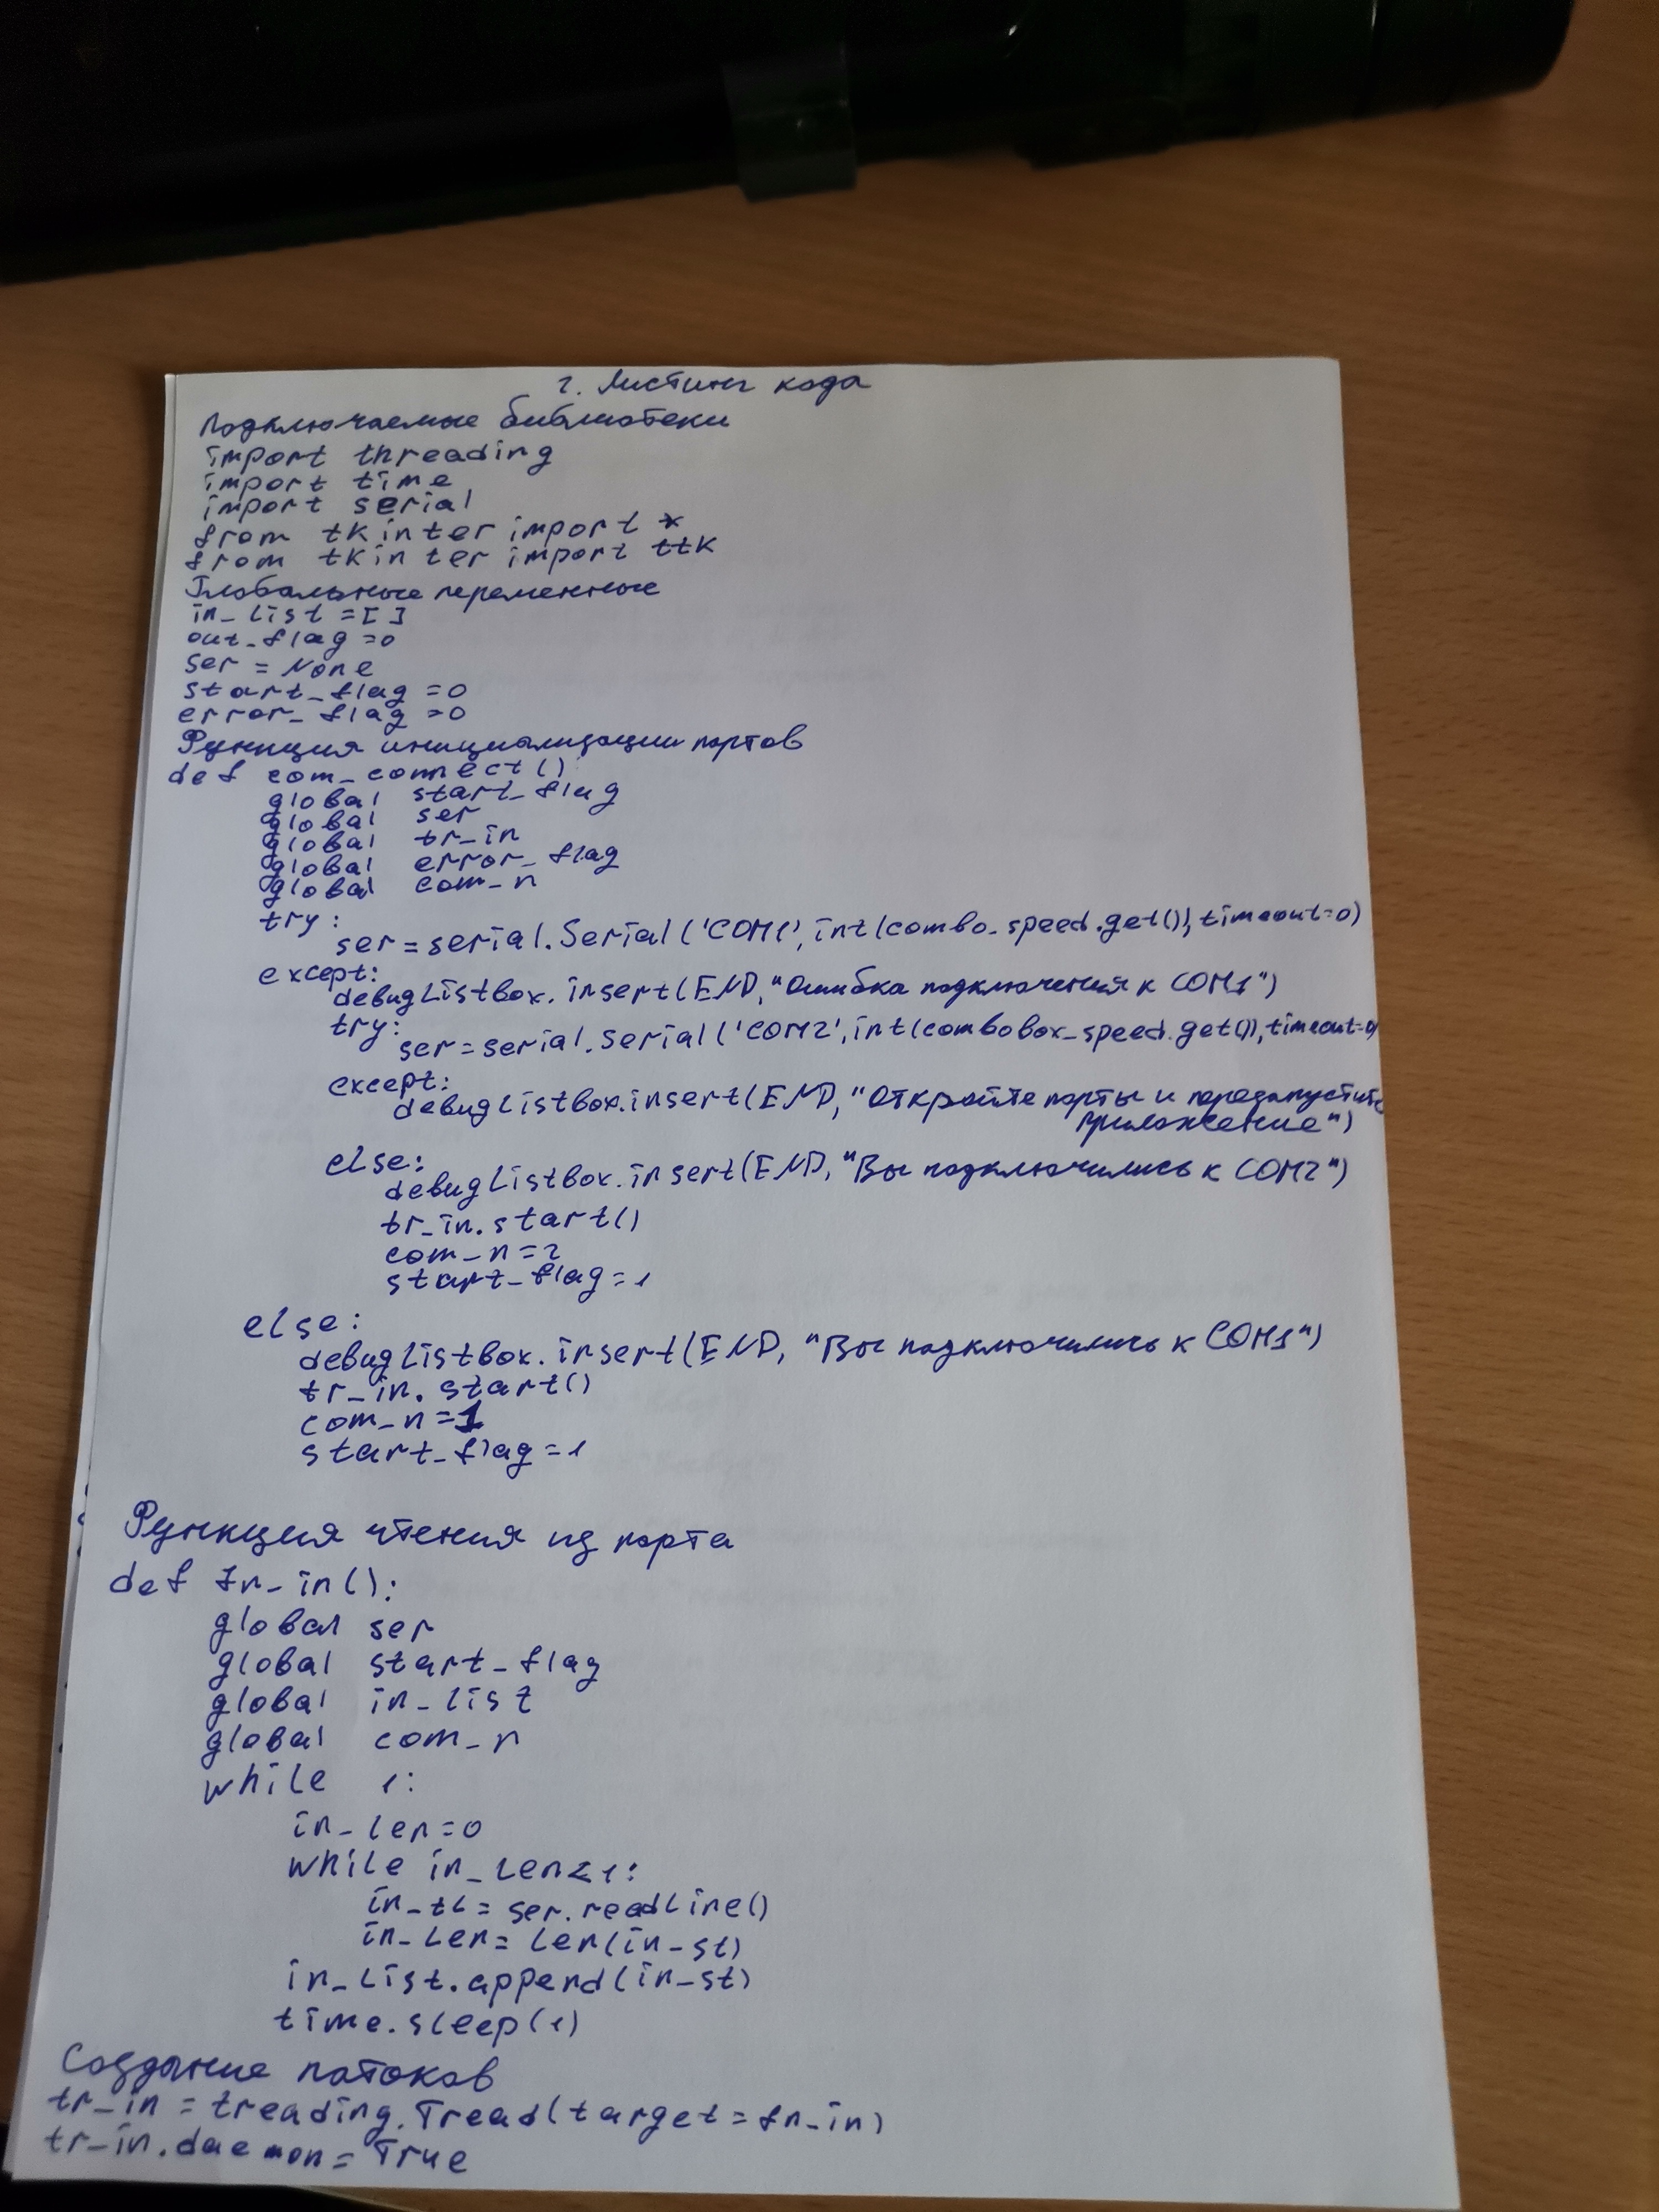 2. Листинг кода
Подключаемые библиотеки
import threading
import time
import serial
from tkinter import *
from tkinter import ttk
Глобальные переменные
in_list =[]
out_flag =0
ser = None
start_flag =0
error_flag =0
Функция инициализации портов
def com_connect():
global start_flag
global ser
global tr_in
global error_flag
global com_n
try:
ser = serial.Serial('COM1', int(combo_speed.get()), timeout=0)
except:
debugListbox.insert(END, "Ошибка подключения к COM1")
try:
ser = serial.Serial('COM2', int(combobox_speed.get()), timeout=0)
except:
debugListbox.insert(END, "Откройте порты и перезапустите
приложение")
else:
debugListbox.insert(END, "Вы подключились к COM2")
tr_in.start()
com_n=2
start_flag=1
else:
debugListbox.insert(END, "Вы подключились к COM1")
tr_in.start()
com_n=1
start_flag=1
Функция чтения из порта
def fn_in():
global ser
global start_flag
global in_list
global com_n
while 1:
in_len=0
while in_len<1:
in_tl = ser.readline()
in_len= len(in_st)
in_list.append(in_st)
time.sleep(1)
Создание потоков
tr_in = treading.Tread(target = fn_in)
tr_in.daemon = True